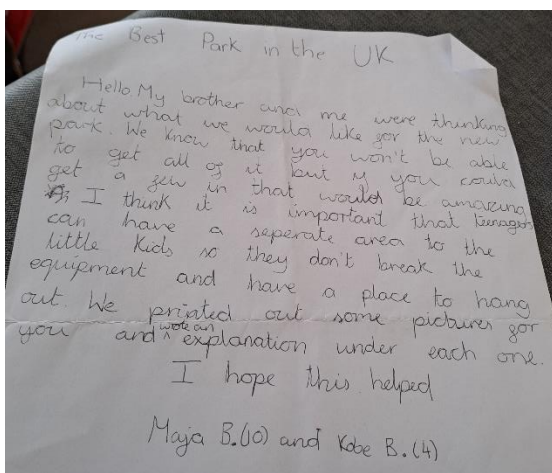 The Best Park in the UK
Hello My brother and me were thinking
about what we would like for the new
park. We know that you won't be able
to get all of it but if you could
get a few in that would be amazing
I think it is important that teenagers
can have a seperate area to the
little kids so they don't break the
equipment and have a place to hang
out. We printed out some pictures for
you and wote an explanation under each one.
I hope this helped
Maja B.(10) and Kobe B.(4)